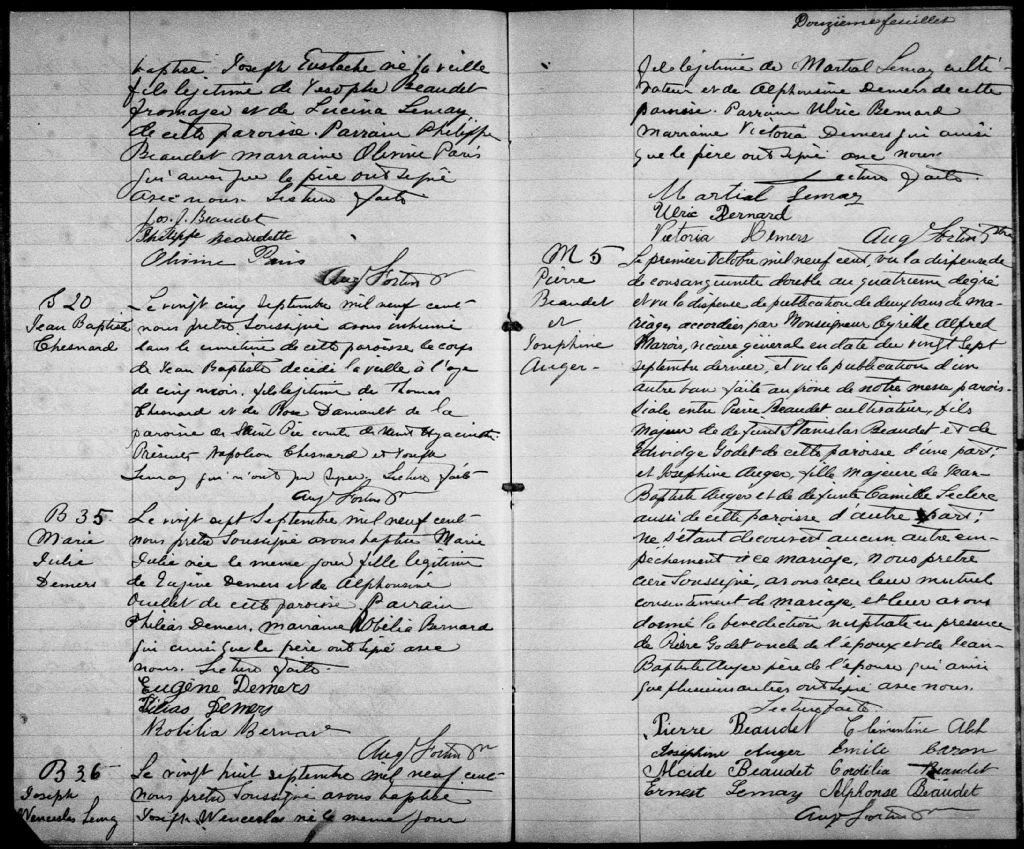 baptisé Joseph Eustache né la veille
fils légitime de Vesophe Beaudet
fromager et de Lucina Lemay
de cette paroisse. Parrain Philippe
Beaudet marraine Olivine Paris
qui ainsi que le père ont signé
avec nous. Lecture faite
Jos. J. Beaudet
Philippe Beaudette
Olivine Paris
Aug. Fortin Ptre
S 20
Jean Baptiste
Chesnard
Le vingt cinq septembre mil neuf cent
nous prêtre soussigné avons inhumé
dans le cimetière de cette paroisse le corps
de Jean Baptiste décédé la veille à l'age
de cinq mois, fils légitime de Thomas
Chesnard et de Rose Daniault de la
paroisse de Saint Pie comté de Saint Hyacinthe.
Présents Napoléon Chesnard et
Lemay qui n'ont pu signer. Lecture faite
Aug. Fortin Ptre
B 35
Marie
Julie
Demers
Le vingt sept Septembre mil neuf cent
nous prêtre soussigné avons baptisé Marie
Julie née le même jour fille légitime
de Eugène Demers et de Alphonsine
Ouellet de cette paroisse. Parrain
Philéas Demers, marraine Robélia Bernard
qui ainsi que le père ont signé avec
nous. Lecture faite.
Eugène Demers
Filias Demers
Robélia Bernard
Aug. Fortin Ptre
B 36
Joseph
Wenceslas Lemay
Le vingt huit septembre mil neuf cent
nous prêtre soussigné avons baptisé
Joseph Wenceslas né le même jour
Douzième feuillet
fils légitime de Martial Lemay culti-
vateur et de Alphonsine Demers de cette
paroisse. Parrain Ulric Bernard
marraine Victoria Demers qui ainsi
que le père ont signé avec nous.
Lecture faite.
Martial Lemay
Ulric Bernard
Victoria Demers Aug. Fortin Ptre
M 5
Pierre
Beaudet
et
Josephine
Auger-
Le premier Octobre mil neuf cent, vu la dispense
de consanguinité double au quatrième dégré
et vu la dispense de publication de deux bans de ma-
riages accordées par Monseigneur Cyrille Alfred
Marois, vicaire général en date du vingt sept
septembre dernier, et vu la publication d'un
autre ban faite au prône de notre messe parois-
siale entre Pierre Beaudet cultivateur, fils
majeur de defunt Stanislas Beaudet et de
Edwidge Godet de cette paroisse d'une part;
et Josephine Auger, fille majeure de Jean-
Baptiste Auger et de defunte Camille Leclerc
aussi de cette paroisse d'autre part;
ne s'étant decouvert aucun autre em-
pêchement à ce mariage, nous prêtre
curé soussigné, avons reçu leur mutuel
consentement de mariage, et leur avons
donné la bénédiction nuptiale en présence
de Pierre Godet oncle de l'époux et de Jean-
Baptiste Auger père de l'épouse qui ainsi
que plusieurs autres ont signé avec nous.
Lecture faite
Pierre Beaudet Clémentine
Joséphine Auger Emile Caron
Alcide Beaudet Cordélia Beaudet
Ernest Lemay Alphonse Beaudet
Aug. Fortin Ptre